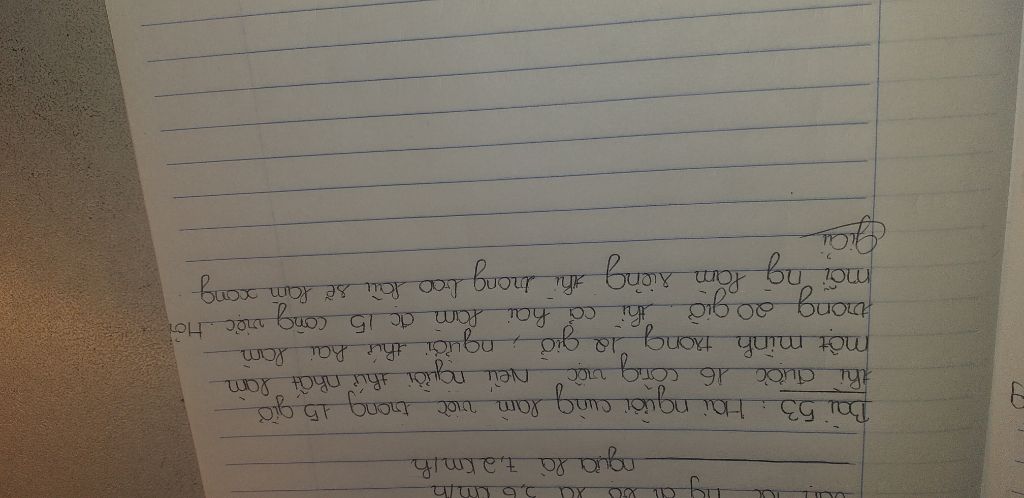 ng đi bộ là 3,6 km/h
ngựa là 7,2 km/h
Bài 53 : Hai người cùng làm việc trong 15 giờ
thì được 16 công việc Nếu người thứ nhất làm
một mình trong 12 giờ, người thứ hai làm
trong 20 giờ thì cả hai làm đc 15 công việc. Hỏi
mỗi ng làm riêng thì trong bao lâu sẽ làm xong
Giải